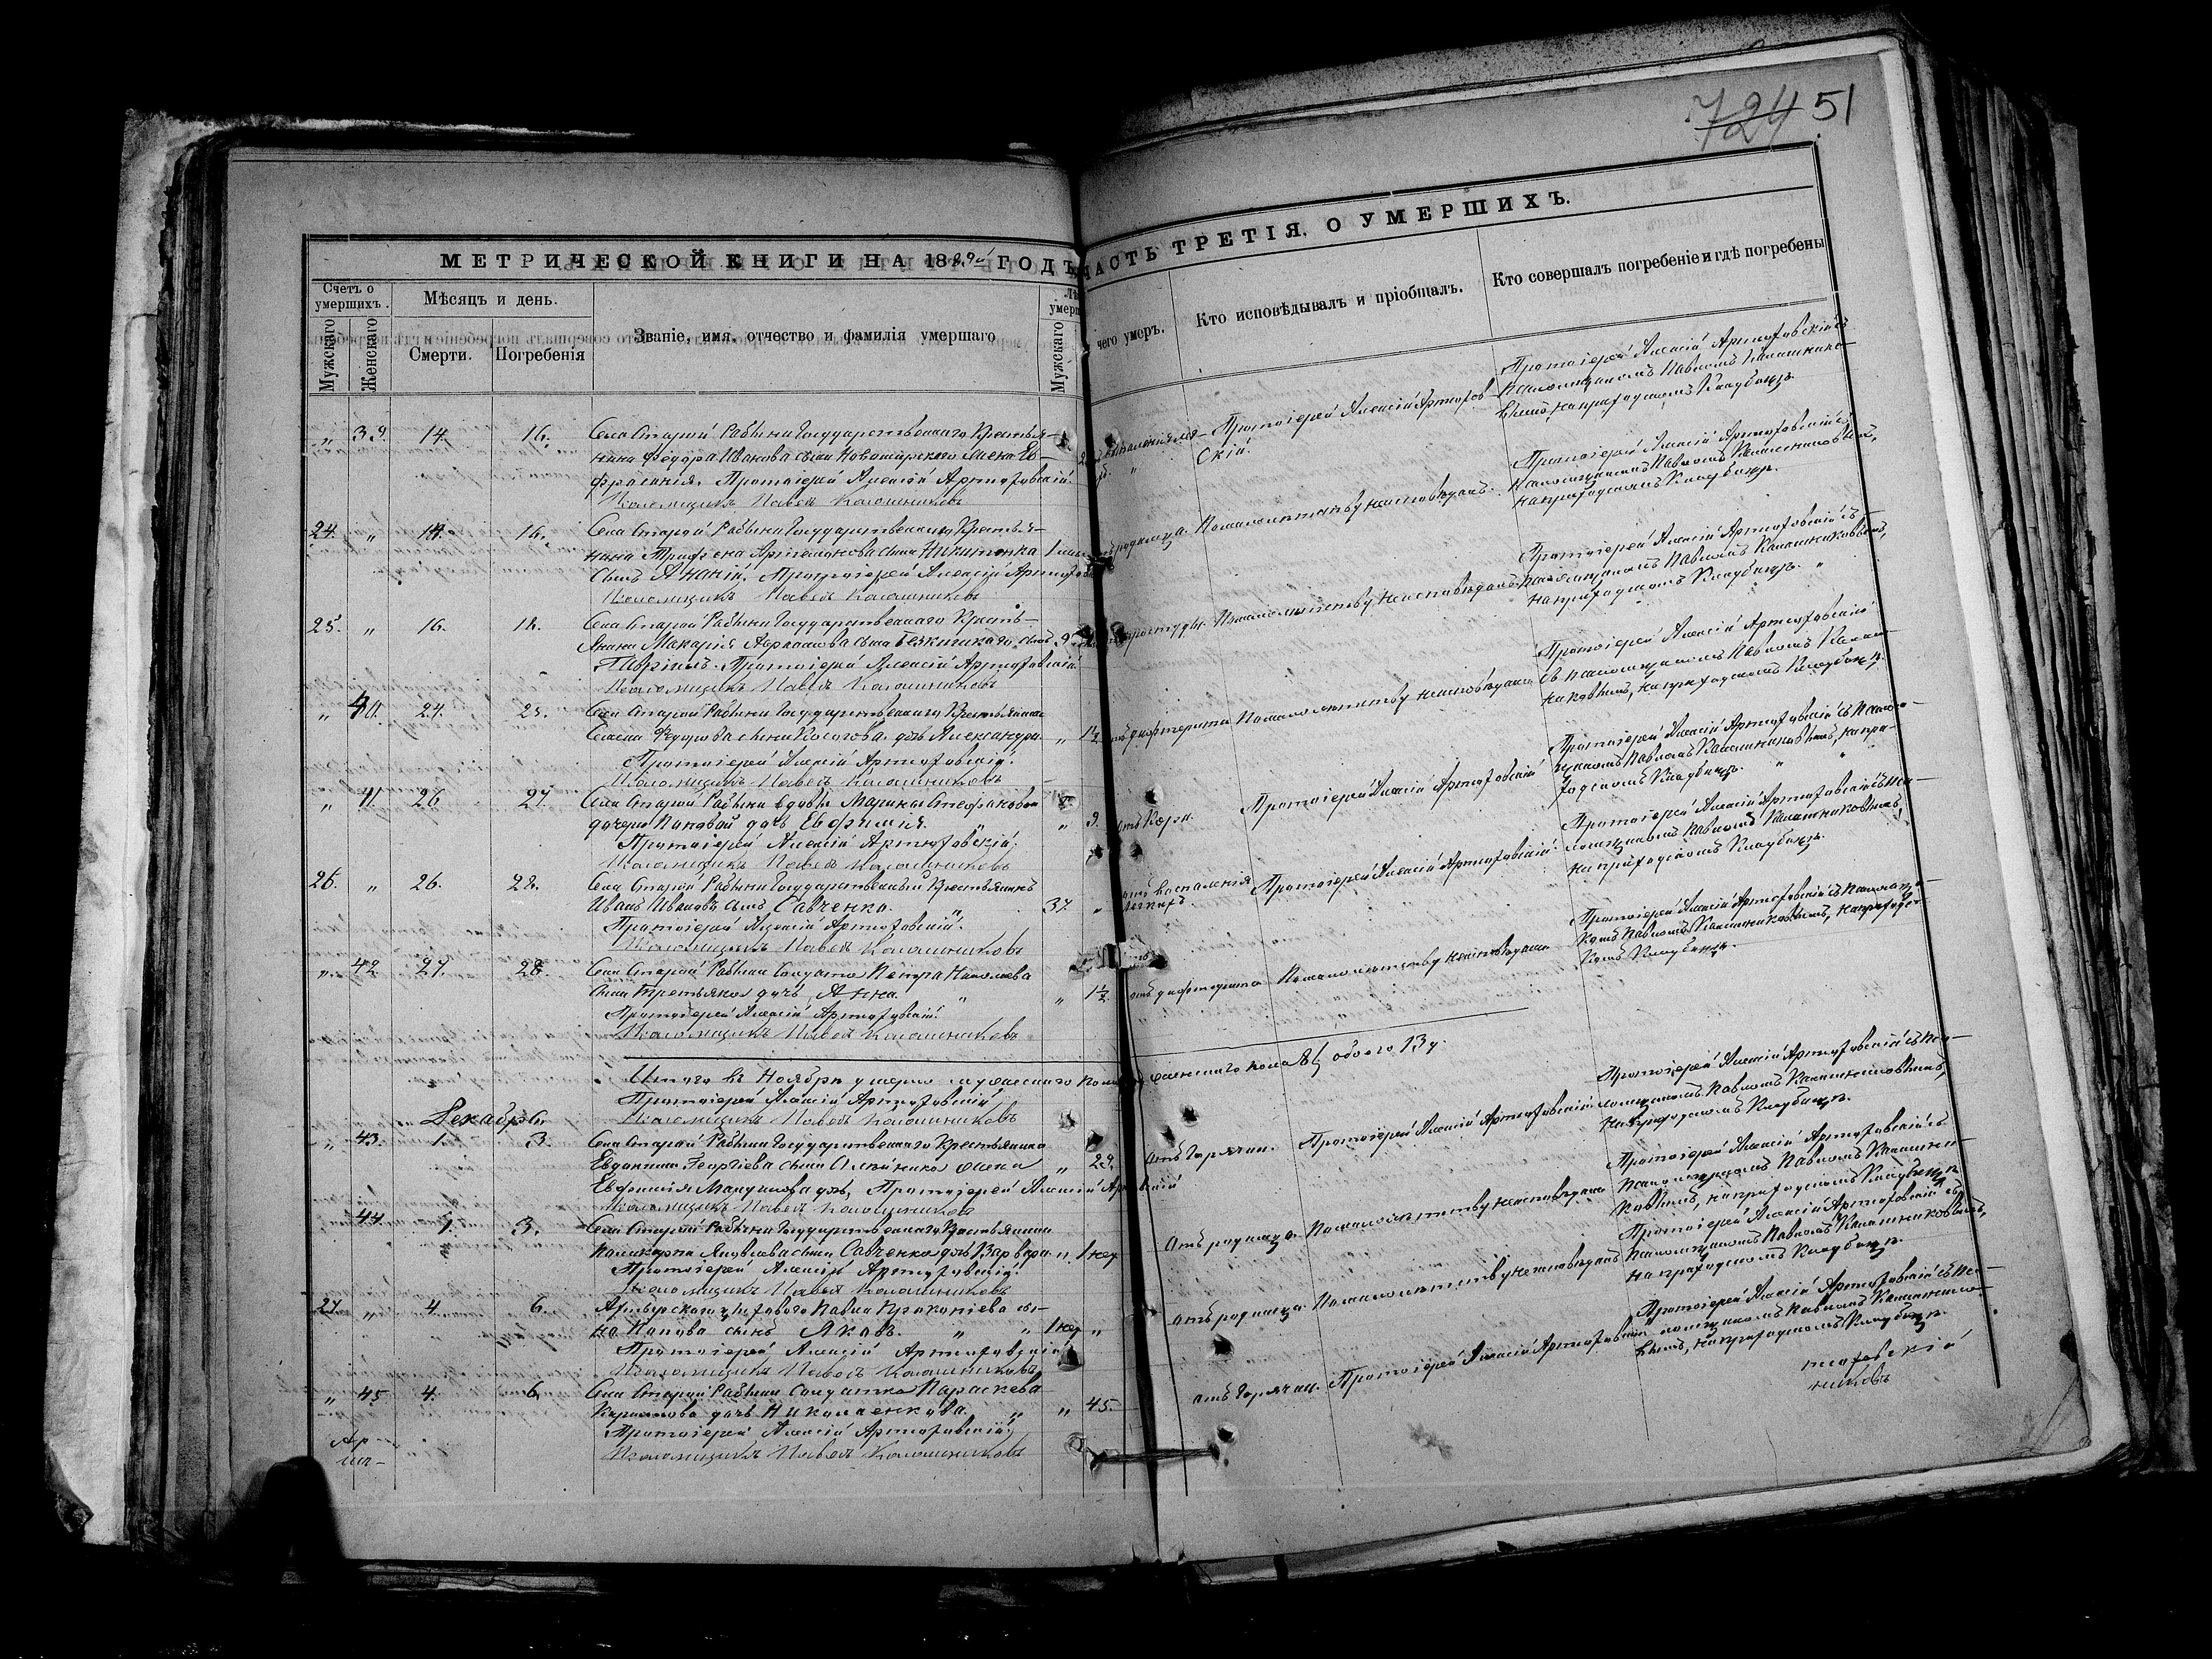 724 51
МЕТРИЧЕСКОЙ КНИГИ НА 1889й ГОДЪ
ЧАСТЬ ТРЕТІЯ, О УМЕРШИХЪ.
Счетъ о умершихъ.
Мужскаго
Женскаго
Мѣсяцъ и день.
Смерти.
Погребенія
Званіе, имя, отчество и фамилія умершаго
Мужскаго
чего умеръ.
Кто исповѣдывалъ и пріобщалъ.
Кто совершалъ погребеніе и гдѣ погребены
„ 39. 14. 16. Села Старой Рабыни Государственнаго Крестья-
нина Ѳеодора Иванова сына жена Ев-
фросинія. Протоіерей Алексій Артюховскій.
Псаломщикъ Павелъ Калашниковъ
Протоіерей Алексій Артюхов-
скій.
Протоіерей Алексій Артюховскій съ
псаломщикомъ Павломъ Калашнико-
вымъ, на приходскомъ кладбищѣ.
24. „ 14. 16. Села Старой Рабыни Государственнаго Крестья-
нина Артемонова сына Никитенка
сынъ Ананій. Протоіерей Алексій Артюхов
Псаломщикъ Павелъ Калашниковъ
родимца. По малолѣтству не исповѣданъ.
Протоіерей Алексій Артюховскій съ
псаломщикомъ Павломъ Калашниковымъ,
на приходскомъ кладбищѣ.
25. „ 16. 18. Села Старой Рабыни Государственнаго Кресть-
янина Макарія сына сынъ 9
Гавріилъ. Протоіерей Алексій Артюховскій.
Псаломщикъ Павелъ Калашниковъ
простуды. По малолѣтству не исповѣданъ
Протоіерей Алексій Артюховскій съ
псаломщикомъ Павломъ Калашниковымъ,
на приходскомъ кладбищѣ. „
„ 40. 24. 25. Села Старой Рабыни Государственнаго Крестьянина
Ѳедорова сына дочь Александра „ 1½
Протоіерей Алексій Артюховскій.
Псаломщикъ Павелъ Калашниковъ
дифтерита По малолѣтству не исповѣдана
Протоіерей Алексій Артюховскій
съ псаломщикомъ Павломъ Калаш-
никовымъ, на приходскомъ кладбищѣ.
„ 41. 26. 27. Села Старой Рабыни вдовы Марины Стефановой
дочери Поповой дочь Евфимія. „ 9.
Протоіерей Алексій Артюховскій.
Псаломщикъ Павелъ Калашниковъ
отъ кори.
Протоіерей Алексій Артюховскій
Протоіерей Алексій Артюховскій съ псалом-
щикомъ Павломъ Калашниковымъ, на при-
ходскомъ кладбищѣ. „ „
26. „ 26. 28. Села Старой Рабыни Государственный Крестьянинъ
Иванъ Ивановъ сынъ Савченко. „ 37. „
Протоіерей Алексій Артюховскій.
Псаломщикъ Павелъ Калашниковъ
отъ воспаленія
легкихъ.
Протоіерей Алексій Артюховскій.
Протоіерей Алексій Артюховскій съ пса-
ломщикомъ Павломъ Калашниковымъ,
на приходскомъ кладбищѣ.
„ 42. 27. 28. Села Старой Рабыни Солдата Петра Николаева
сына Третьяка дочь Анна. „ „ 1½
Протоіерей Алексій Артюховскій.
Псаломщикъ Павелъ Калашниковъ
отъ дифтерита По малолѣтству не исповѣдана
Протоіерей Алексій Артюховскій съ псаломщи-
комъ Павломъ Калашниковымъ, на приходс-
комъ кладбищѣ.
Итого въ Ноябрѣ умерло мужескаго пола
женскаго пола 8, обоего 13 д.
Протоіерей Алексій Артюховскій
Псаломщикъ Павелъ Калашниковъ
Декабрь.
„ 43. 1. 3. Села Старой Рабыни Государственнаго Крестьянина
Евдокима Георгіева сына Олейника жена „ 29.
Евфимія дочь, Протоіерей Алексій Артюховскій
Псаломщикъ Павелъ Калашниковъ
отъ горячки.
Протоіерей Алексій Артюховскій
Протоіерей Алексій Артюховскій съ пса-
ломщикомъ Павломъ Калашниковымъ,
на приходскомъ кладбищѣ.
44. 1. 3. Села Старой Рабыни Государственнаго Крестьянина
Поликарпа Яковлева сына Савченко дочь Варвара „ 1 нед
Протоіерей Алексій Артюховскій.
Псаломщикъ Павелъ Калашниковъ
отъ родимца. По малолѣтству не исповѣдана
Протоіерей Алексій Артюховскій съ
псаломщикомъ Павломъ Калашни-
ковымъ, на приходскомъ кладбищѣ.
27. „ 4. 6. Павла Прокопіева сы-
на Попова сынъ Яковъ. „ „ 1 нед „
Протоіерей Алексій Артюховскій
Псаломщикъ Павелъ Калашниковъ
отъ родимца. По малолѣтству не исповѣданъ
Протоіерей Алексій Артюховскій съ
псаломщикомъ Павломъ Калашниковымъ,
на приходскомъ кладбищѣ.
„ 45. 4. 6. Села Старой Рабыни солдатка Параскева
дочь Николаенкова. „ „ 45.
Протоіерей Алексій Артюховскій
Псаломщикъ Павелъ Калашниковъ
отъ горячки. Протоіерей Алексій Артюховскій
Протоіерей Алексій Артюховскій съ пса-
ломщикомъ Павломъ Калашнико-
вымъ, на приходскомъ кладбищѣ.
Ар-
тюховскій
никовъ